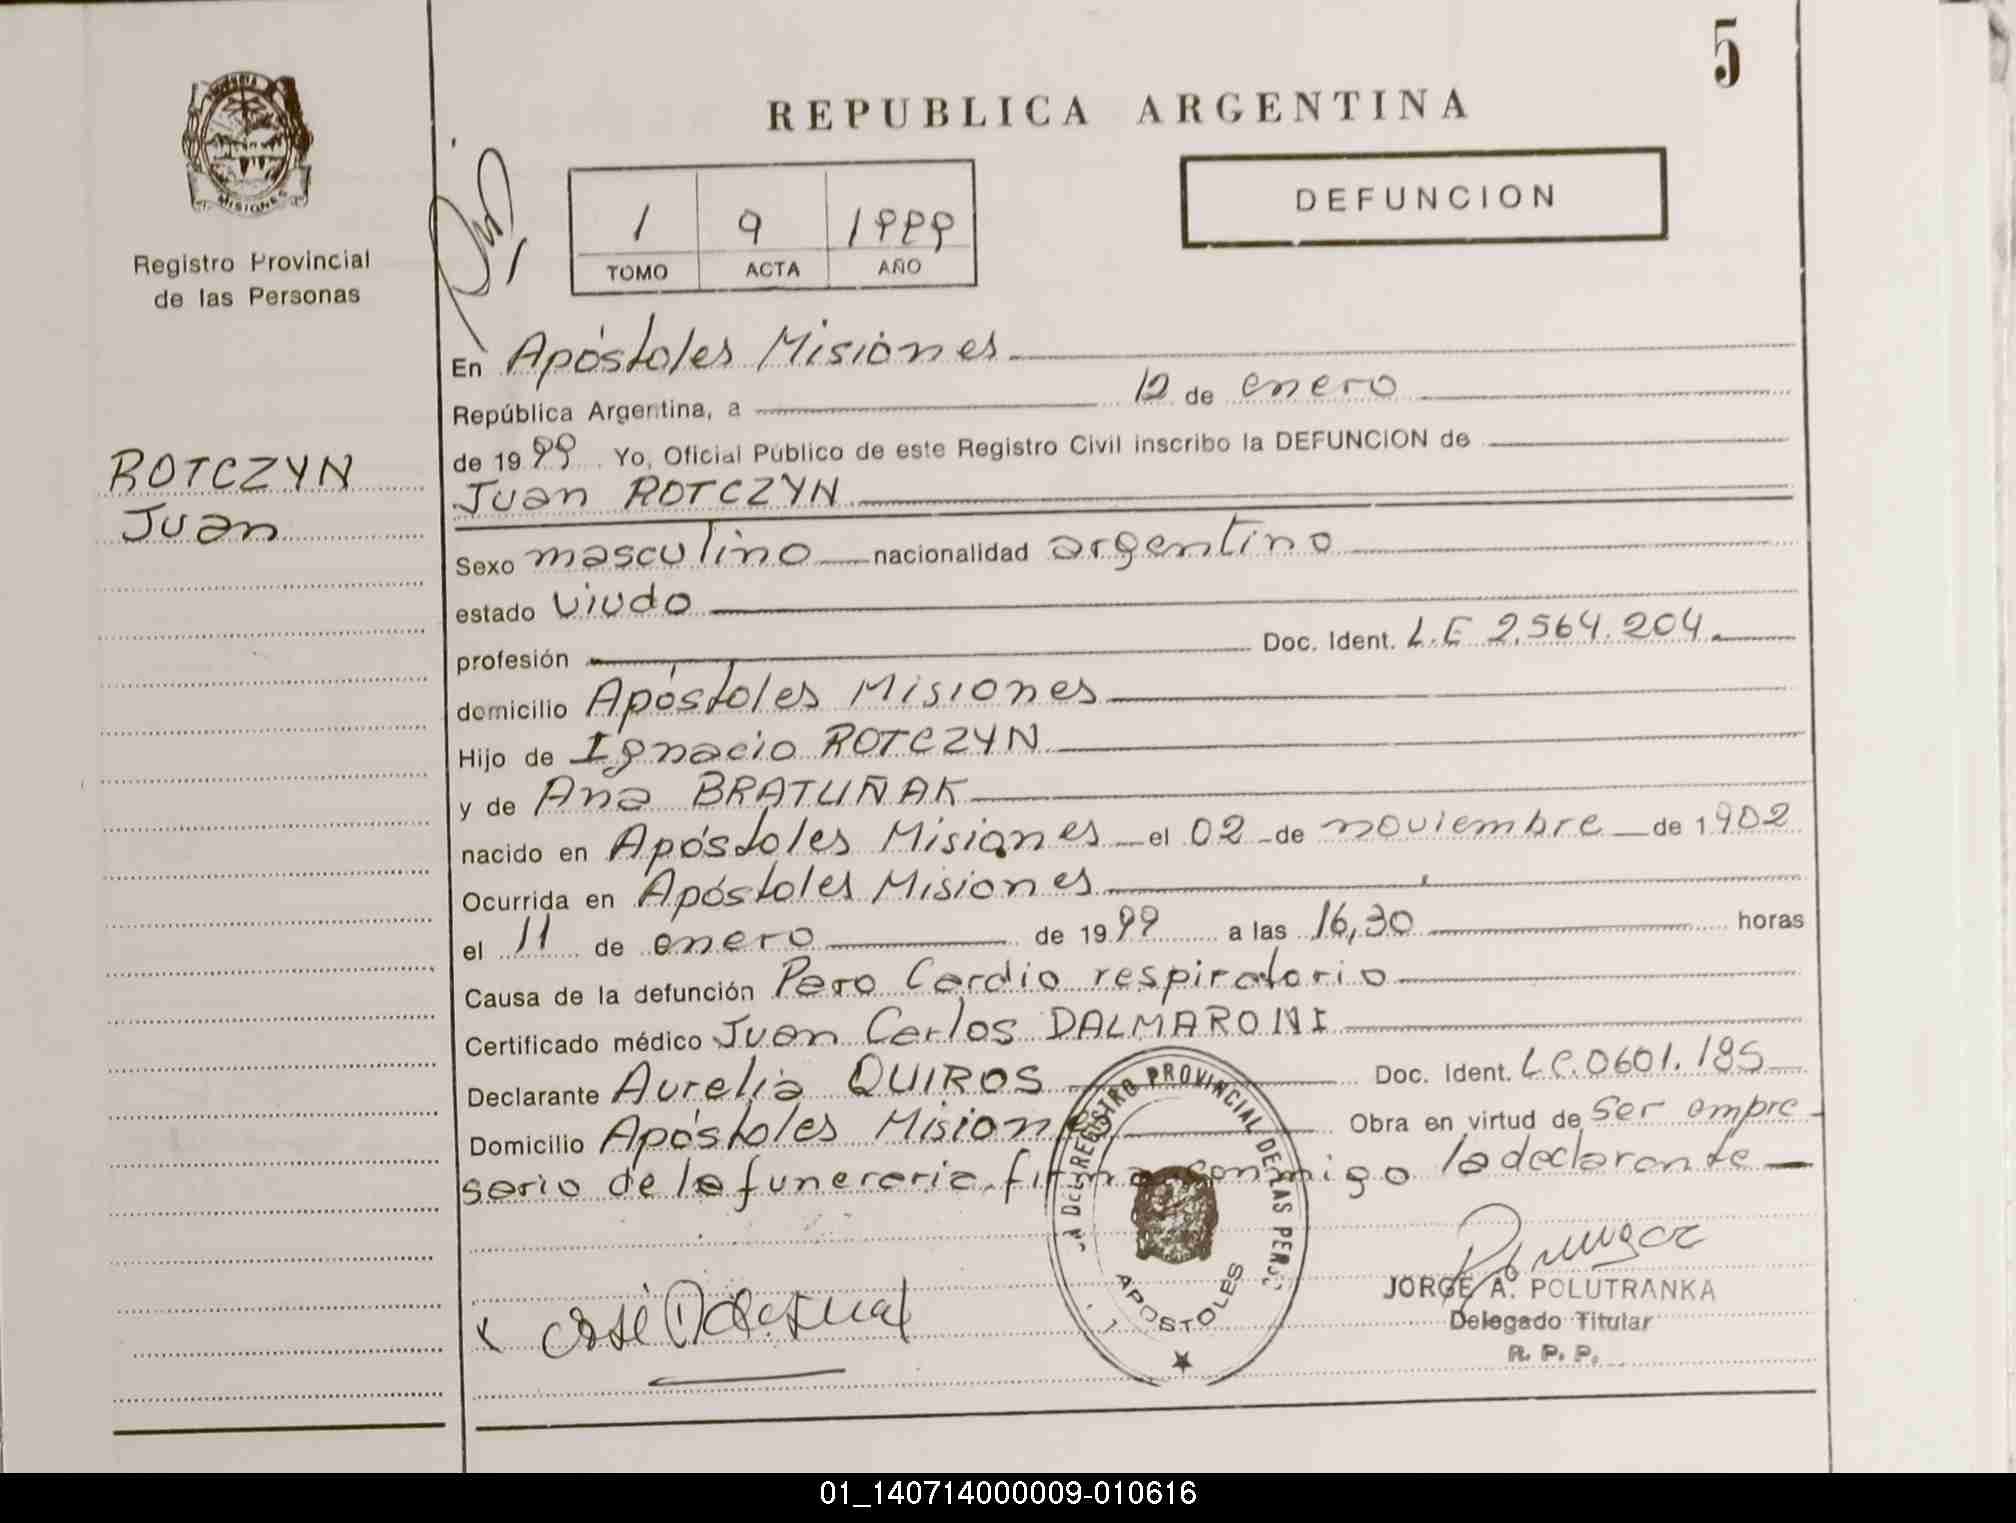 5
REPUBLICA ARGENTINA
PROVINCIA
MISIONES
Registro Provincial
de las Personas
DEFUNCION
1 9 1999
TOMO ACTA AÑO
ROTCZYN
Juan
En Apóstoles Misiones
República Argentina, a 12 de enero
de 1999 Yo, Oficial Público de este Registro Civil inscribo la DEFUNCION de
Juan ROTCZYN
Sexo masculino nacionalidad argentino
estado viudo
profesión Doc. Ident. L.E 2.564.204
domicilio Apóstoles Misiones
Hijo de Ignacio ROTCZYN
y de Ana BRATUÑAK
nacido en Apóstoles Misiones el 02 de noviembre de 1902
Ocurrida en Apóstoles Misiones
el 11 de enero de 1999 a las 16,30 horas
Causa de la defunción Paro Cardio respiratorio
Certificado médico Juan Carlos DALMARONI
Declarante Aurelia QUIROS Doc. Ident. LC.0601.185
Domicilio Apóstoles Misiones Obra en virtud de ser empre
sario de la funeraria. firma conmigo la declarante
DEL REGISTRO PROVINCIAL DE LAS PERS
APOSTOLES
JORGE A. POLUTRANKA
Delegado Titular
R. P. P.
x José
01_140714000009-010616